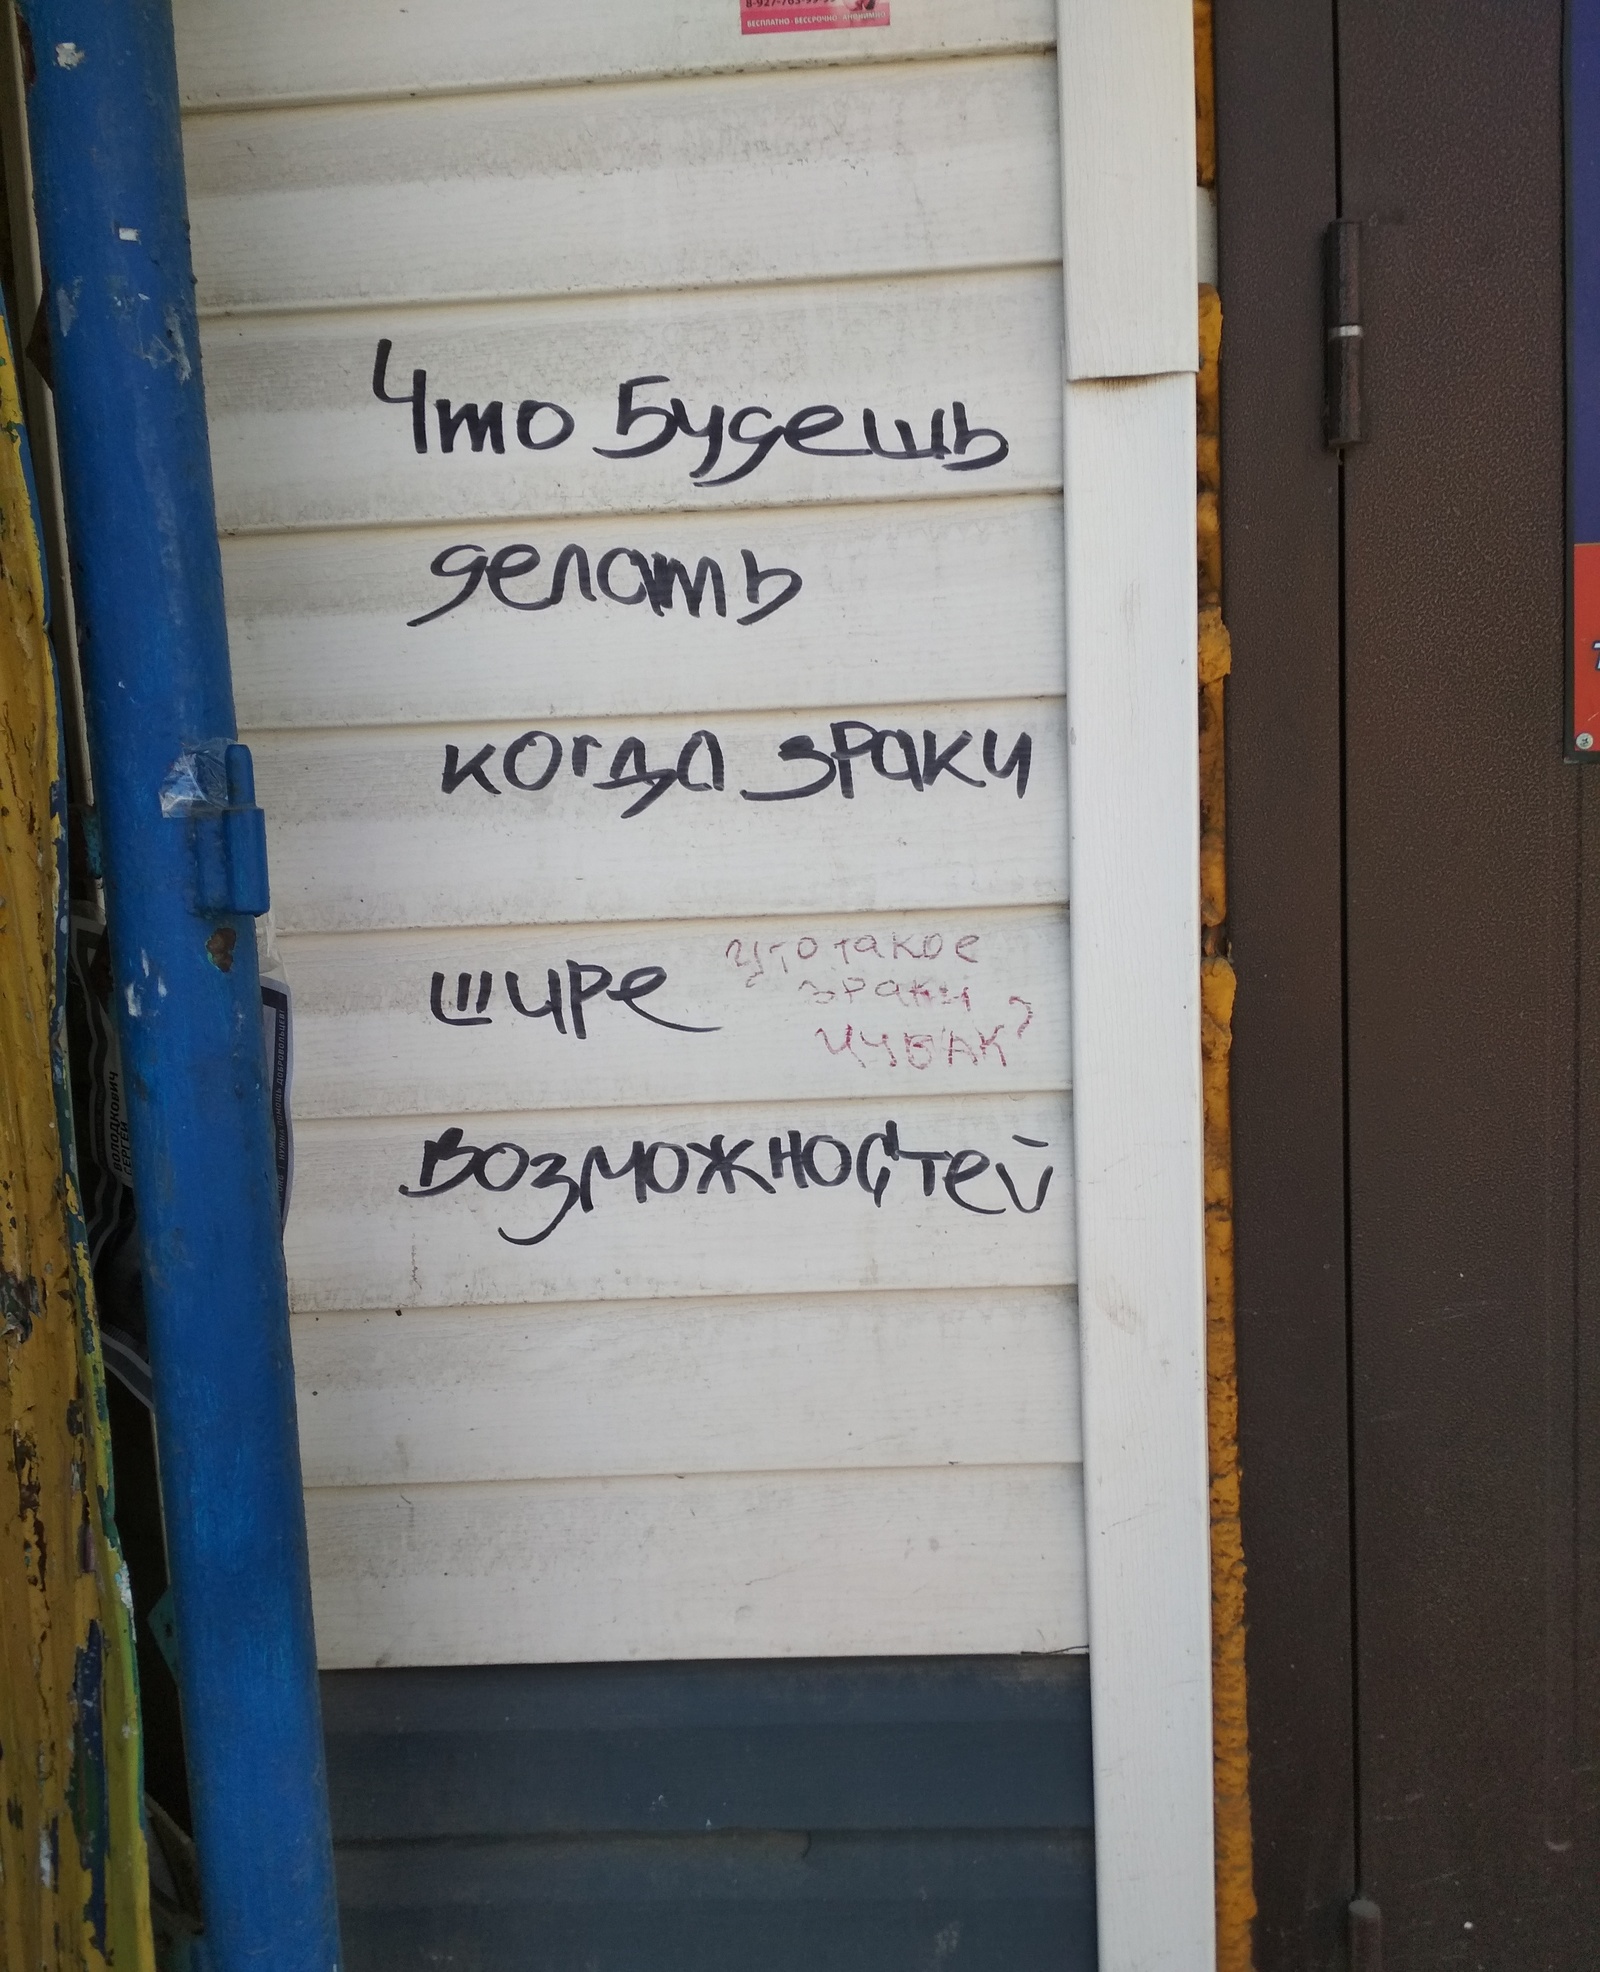 БЕСПЛАТНО · БЕССРОЧНО · АНОНИМНО
Что Будешь
делать
когда зраки
шире
что такое
зраки
чувак?
возможностей
ВОЛОДКОВИЧ
СЕРГЕЙ
НУЖНА ПОМОЩЬ ДОБРОВОЛЬЦЕВ!